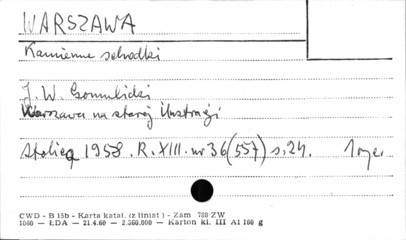 WARSZAWA
Kamienne schodki
J. W. Gomulicki
Warszawa na starej ilustracji
Stolica 1958. R. XIII. nr 36 (557) s. 24. 1 ryc.
CWD - B 15b - Karta katal. (z liniat.) - Zam 788 ZW
1060 — ŁDA — 21.4.60 — 2.360.000 — Karton kl. III A1 160 g